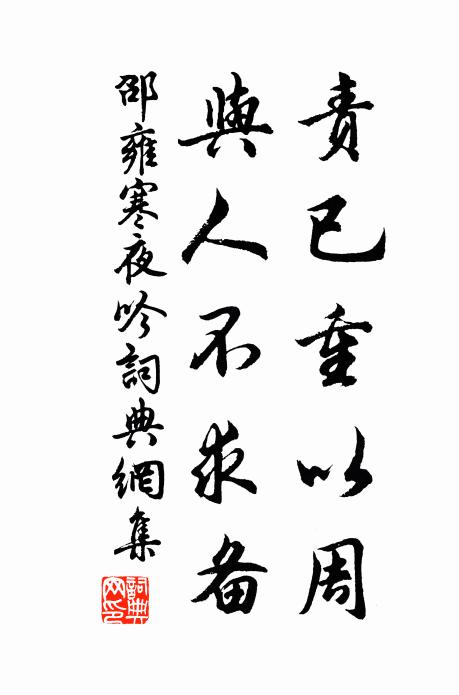 責已重以周
與人不求备
邵雍寒夜吟詞典網集
詞典
网印